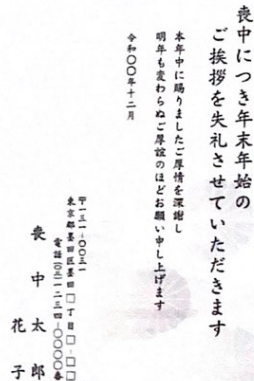 喪中につき年末年始の
ご挨拶を失礼させていただきます
本年中に賜りましたご厚情を深謝し
明年も変わらぬご厚誼のほどお願い申し上げます
令和〇〇年十二月
〒一三一-〇〇三一
東京都墨田区墨田□丁目□-□□
電話(〇三)一二三四-〇〇〇〇番
喪中太郎
花子